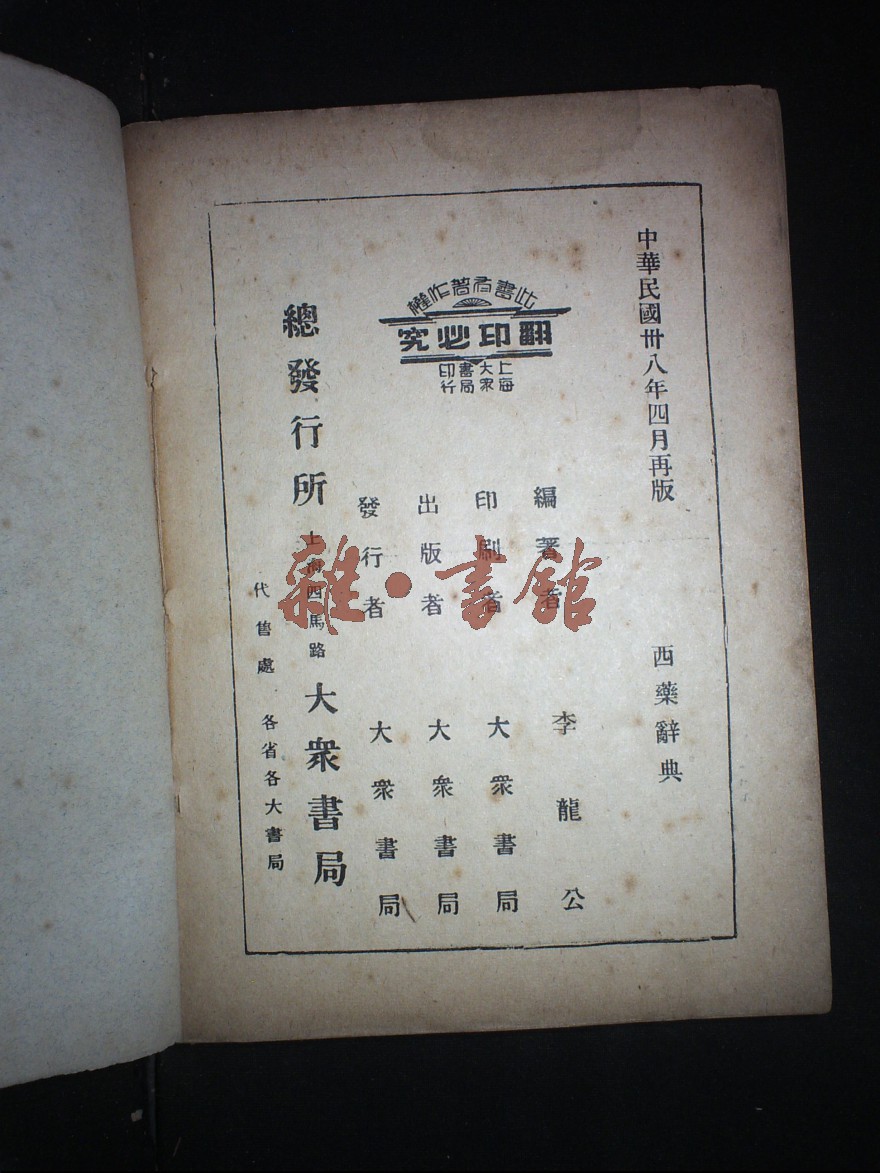 中華民國卅八年四月再版
西藥辭典
此書有著作權
翻印必究
上海
大衆
書局
印行
編著者 李龍公
印刷者 大衆書局
出版者 大衆書局
發行者 大衆書局
總發行所 上海四馬路 大衆書局
代售處 各省各大書局
雜·書館